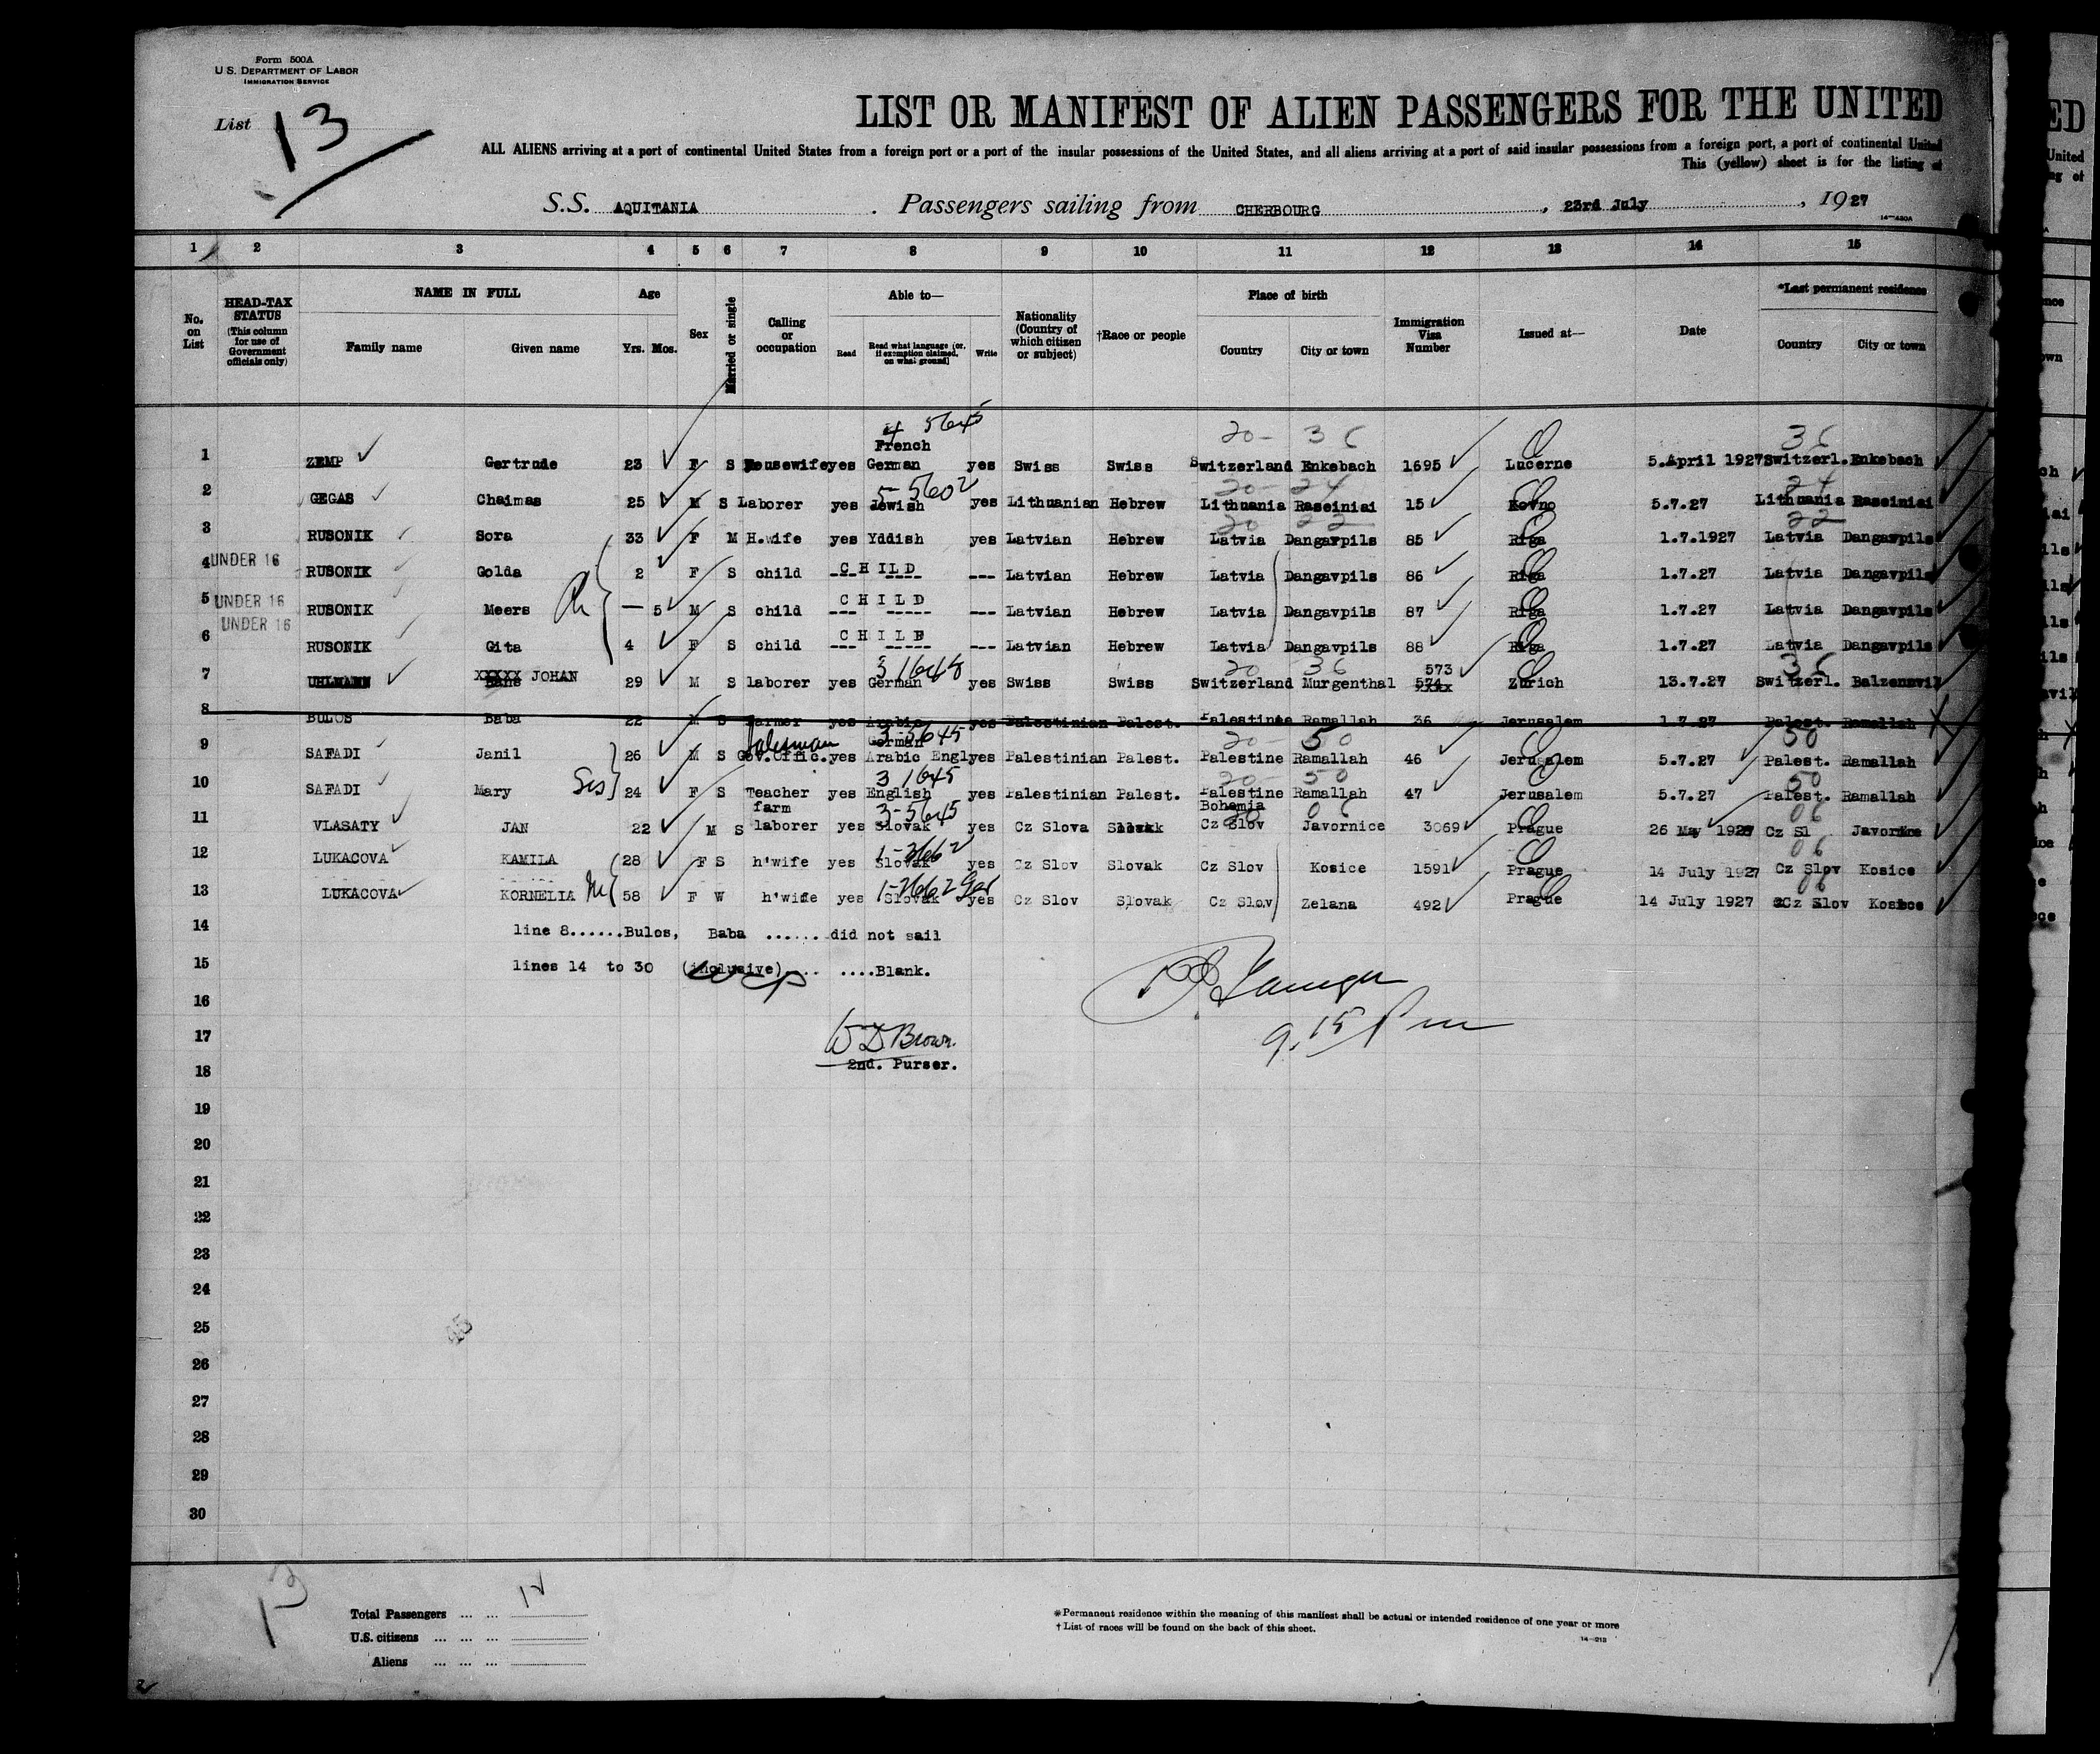 Form 500A
U. S. DEPARTMENT OF LABOR
IMMIGRATION SERVICE
List 13
LIST OR MANIFEST OF ALIEN PASSENGERS FOR THE UNITED
ALL ALIENS arriving at a port of continental United States from a foreign port or a port of the insular possessions of the United States, and all aliens arriving at a port of said insular possessions from a foreign port, a port of continental United
This (yellow) sheet is for the listing of
S.S. AQUITANIA . Passengers sailing from CHERBOURG , 23rd July , 1927
14-430A
1 2 3 4 5 6 7 8 9 10 11 12 13 14 15
No. on List
HEAD-TAX STATUS (This column for use of Government officials only)
NAME IN FULL Family name Given name
Age Yrs. Mos.
Sex
Married or single
Calling or occupation
Able to— Read Read what language (or, if exemption claimed, on what ground) Write
Nationality (Country of which citizen or subject)
†Race or people
Place of birth Country City or town
Immigration Visa Number
Issued at—
Date
*Last permanent residence Country City or town
4 5645 20- 36 36
French
1 ZEMP Gertrude 23 F S Housewife yes German yes Swiss Swiss Switzerland Enkebach 1695 Lucerne 5.April 1927 Switzerl. Enkebach
5-5602 20- 24 24
2 GEGAS Chaimas 25 M S Laborer yes Jewish yes Lithuanian Hebrew Lithuania Raseiniai 15 Kovno 5.7.27 Lithuania Raseiniai
20 22 22
3 RUSONIK Sora 33 F M H.wife yes Yddish yes Latvian Hebrew Latvia Dangavpils 85 Riga 1.7.1927 Latvia Dangavpils
4 UNDER 16 RUSONIK Golda 2 F S child --- CHILD --- Latvian Hebrew Latvia Dangavpils 86 Riga 1.7.27 Latvia Dangavpils
5 UNDER 16 RUSONIK Meers — 5 M S child --- CHILD --- Latvian Hebrew Latvia Dangavpils 87 Riga 1.7.27 Latvia Dangavpils
UNDER 16
6 RUSONIK Gita 4 F S child --- CHILD --- Latvian Hebrew Latvia Dangavpils 88 Riga 1.7.27 Latvia Dangavpils
3 1648 20 36 573 36
7 UHLMANN XXXXX JOHAN Hans 29 M S laborer yes German yes Swiss Swiss Switzerland Murgenthal 574 Zurich 13.7.27 Switzerl. Balzenwil
8 BULOS Baba 22 M S Farmer yes Arabic yes Palestinian Palest. Palestine Ramallah 36 Jerusalem 1.7.27 Palest. Ramallah
Salesman German 3-5645 20- 50 50
9 SAFADI Janil 26 M S Gov.Offic. yes Arabic Engl yes Palestinian Palest. Palestine Ramallah 46 Jerusalem 5.7.27 Palest. Ramallah
3 1645 20- 50 50
10 SAFADI Mary Sis 24 F S Teacher yes English yes Palestinian Palest. Palestine Ramallah 47 Jerusalem 5.7.27 Palest. Ramallah
farm 3-5645 Bohemia 20 06 06
11 VLASATY JAN 22 M S laborer yes Slovak yes Cz Slova Slovak Cz Slov Javornice 3069 Prague 26 May 1927 Cz Sl Javornice
1-3662 06
12 LUKACOVA KAMILA 28 F S h'wife yes Slovak yes Cz Slov Slovak Cz Slov Kosice 1591 Prague 14 July 1927 Cz Slov Kosice
1-3662 Ger 06
13 LUKACOVA KORNELIA M 58 F W h'wife yes Slovak yes Cz Slov Slovak Cz Slov Zelana 492 Prague 14 July 1927 Cz Slov Kosice
14 line 8......Bulos, Baba ...... did not sail
15 lines 14 to 30 (inclusive).... ....Blank.
16
9.15 Pm
17 W D Brown.
2nd. Purser.
18
19
20
21
22
23
24
25
26
27
28
29
30
13
Total Passengers ... ... 12
U.S. citizens ... ... ...
Aliens ... ... ...
*Permanent residence within the meaning of this manifest shall be actual or intended residence of one year or more
† List of races will be found on the back of this sheet.
14-213